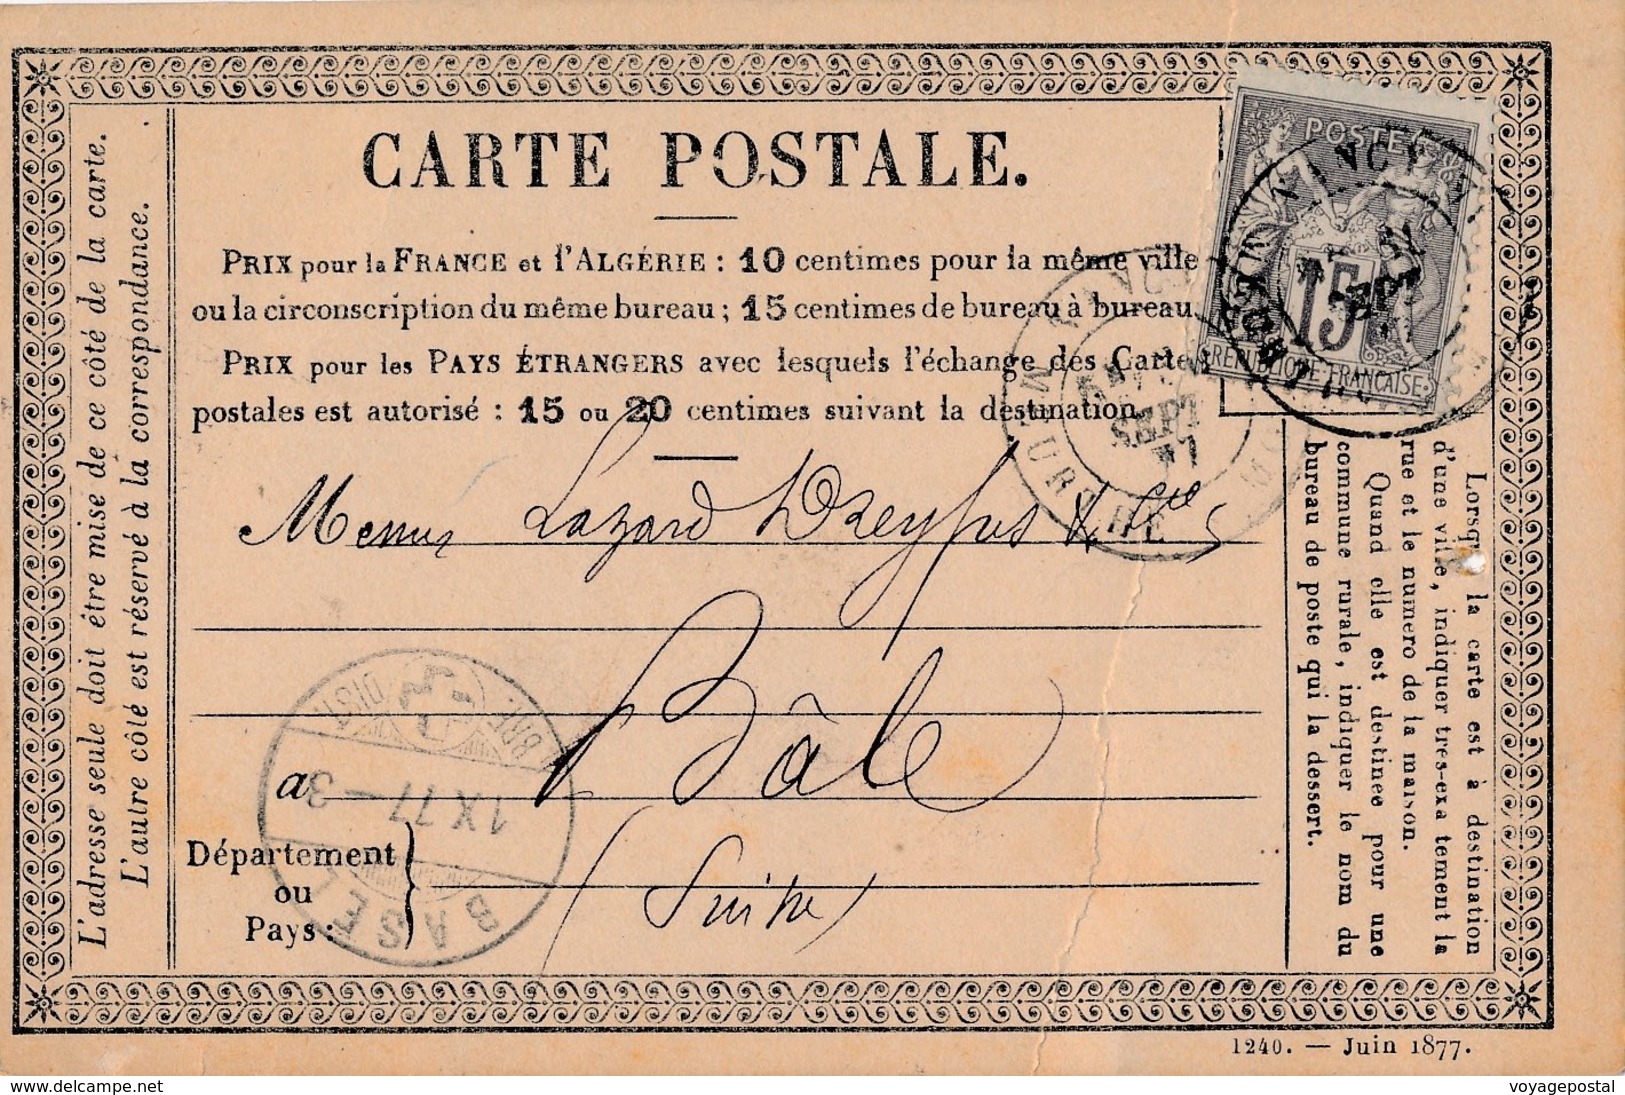 CARTE POSTALE.
PRIX pour la FRANCE et l'ALGÉRIE : 10 centimes pour la même ville
ou la circonscription du même bureau ; 15 centimes de bureau à bureau.
PRIX pour les PAYS ÉTRANGERS avec lesquels l'échange des Cartes
postales est autorisé : 15 ou 20 centimes suivant la destination.
L'adresse seule doit être mise de ce côté de la carte.
L'autre côté est réservé à la correspondance.
POSTES
15
REPUBLIQUE FRANÇAISE
NANCY
NANCY
SEPT
77
MEURTHE
Messrs Lazard Dreyfus & Cie
à Bâle
Département
ou
Pays :
(Suisse)
BASEL
1 X 77 - 3
BRF. DIST
Lorsque la carte est à destination
d'une ville, indiquer très-exactement la
rue et le numéro de la maison.
Quand elle est destinée pour une
commune rurale, indiquer le nom du
bureau de poste qui la dessert.
1240. — Juin 1877.
www.delcampe.net
voyagepostal